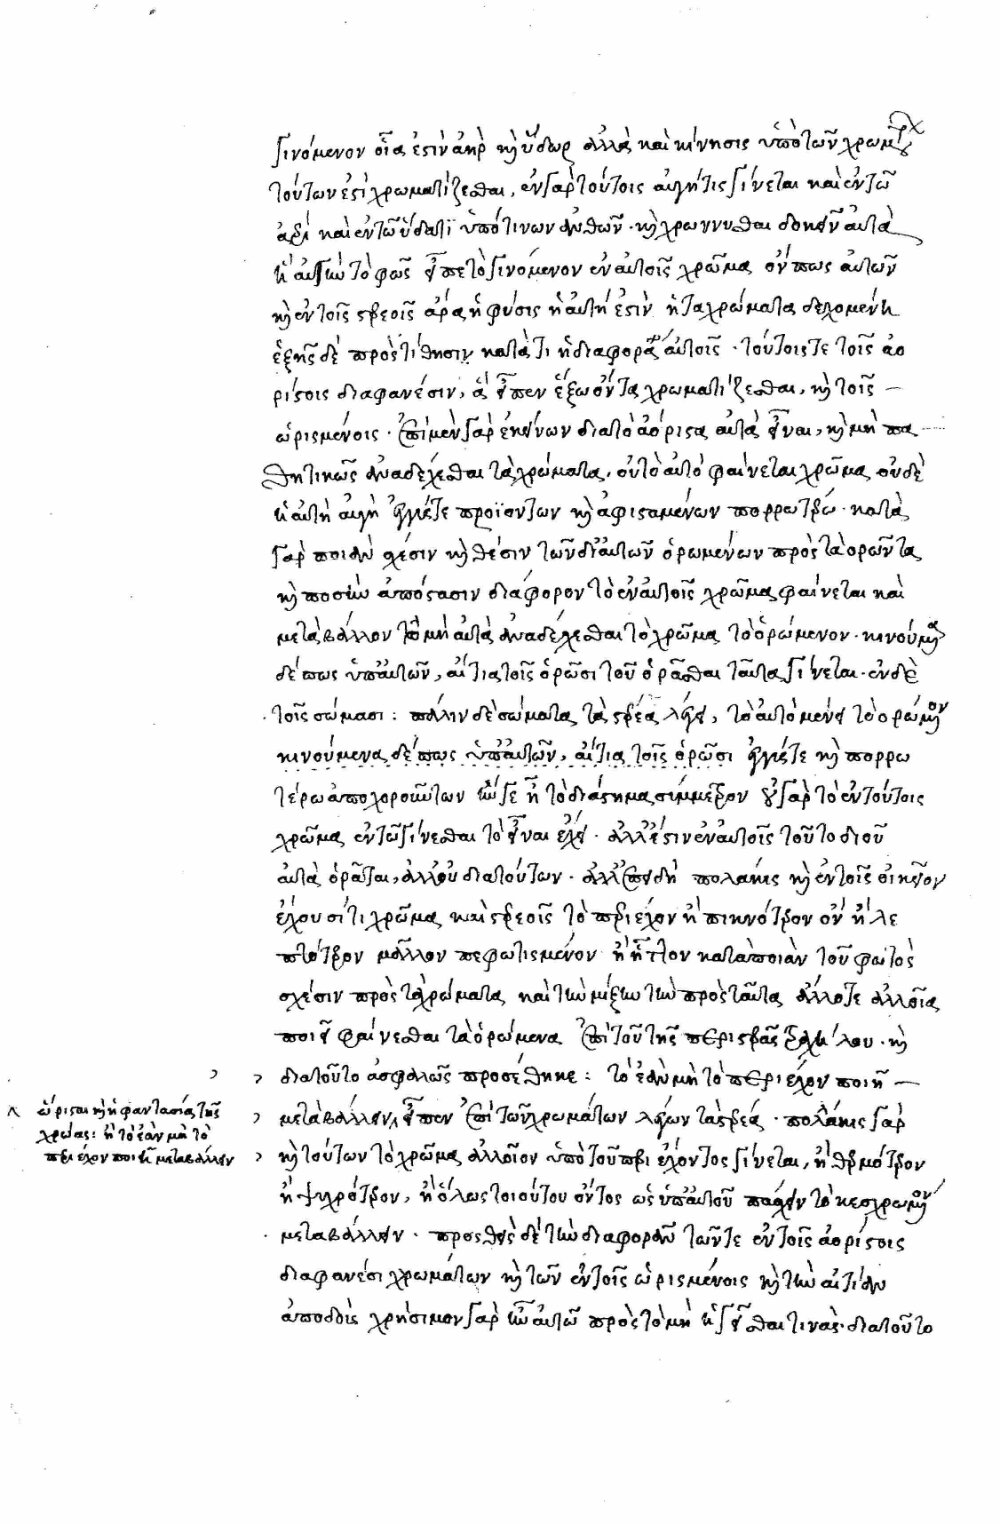 γινόμενον οἷα ἐστὶν ἀὴρ καὶ ὕδωρ ἀλλὰ καὶ κίνησις ὑπὸ τῶν χρωμάτων
τούτων ἐστὶ χρωματίζεσθαι. ἐν γὰρ τούτοις αὐγή τις γίνεται καὶ ἐν τῶ
ἀέρι καὶ ἐν τῶ ὕδατι ὑπό τινων ἀνθῶν. καὶ χρώννυσθαι δοκεῖν αὐτὰ
ἡ αὐγὴ τὸ φῶς εἶπε τὸ γινόμενον ἐν αὐτοῖς χρῶμα
καὶ ἐν τοῖς στερεοῖς ἄρα ἡ φύσις ἡ αὐτή ἐστιν ἡ τὰ χρώματα δεχομένη
ἑξῆς δὲ προστίθησιν κατὰ τί ἡ διαφορὰ αὐτοῖς. τούτοις τε τοῖς ἀο
ρίστοις διαφανέσιν, ἃ εἶπεν ἔξωθεν χρωματίζεσθαι, καὶ τοῖς
ὡρισμένοις. ἐπὶ μὲν γὰρ ἐκείνων διὰ τὸ ἀόριστα αὐτὰ εἶναι, καὶ μὴ πα
θητικῶς ἀναδέχεσθαι τὰ χρώματα, οὐ τὸ αὐτὸ φαίνεται χρῶμα οὐδὲ
ἡ αὐτὴ αὐγὴ ἐγγύς τε προϊόντων καὶ ἀφισταμένων πορρωτέρω. κατὰ
γὰρ ποιὰν σχέσιν καὶ θέσιν τῶν δι' αὐτῶν ὁρωμένων πρὸς τὰ ὁρῶντα
καὶ ποσὴν ἀπόστασιν διάφορον τὸ ἐν αὐτοῖς χρῶμα φαίνεται καὶ
μεταβάλλον τῶ μὴ αὐτὰ ἀναδέχεσθαι τὸ χρῶμα τὸ ὁρώμενον. κινούμενα
δέ πως ὑπ' αὐτῶν, αἴτια τοῖς ὁρῶσι τοῦ ὁρᾶσθαι ταῦτα γίνεται. ἐν δὲ
τοῖς σώμασι: πάλιν δὲ σώματα τὰ στερεὰ λέγει, τὸ αὐτὸ μένει τὸ ὁρώμενον
κινούμενα δέ πως ὑπ' αὐτῶν, αἴτια τοῖς ὁρῶσι ἐγγύς τε καὶ πορρω
τέρω ἀποχωρούντων ἄν γε ᾖ τὸ διάστημα σύμμετρον οὐ γὰρ τὸ ἐν τούτοις
χρῶμα ἐν τῶ γίνεσθαι τὸ εἶναι ἔχει. ἀλλ' ἔστιν ἐν αὐτοῖς τοῦτο δι' οὗ
αὐτὰ ὁρᾶται, ἀλλ' οὐ διὰ τούτων. ἀλλ' ἐπειδὴ πολλάκις καὶ ἐν τοῖς οἰκεῖον
ἔχουσί τι χρῶμα καὶ στερεοῖς τὸ περιέχον ἢ πυκνότερον ὂν ἢ λε
πτότερον μᾶλλον πεφωτισμένον ἢ ἧττον κατὰ ποιὰν τοῦ φωτὸς
σχέσιν πρὸς τὰ χρώματα καὶ τὴν μίξιν τὴν πρὸς ταῦτα ἄλλοτε ἀλλοῖα
ποιεῖ φαίνεσθαι τὰ ὁρώμενα ἐπὶ τοῦ τῆς περιστερᾶς τραχήλου. καὶ
διὰ τοῦτο ἀσφαλῶς προσέθηκε: τὸ ἐὰν μὴ τὸ περιέχον ποιῇ
μεταβάλλειν, εἶπεν ἐπὶ τῶν χρωμάτων λέγων τὰ στερεά. πολλάκις γὰρ
ὥρισται καὶ ἡ φαντασία τῆς
χρόας: ἢ τὸ ἐὰν μὴ τὸ
περιέχον ποιῇ μεταβάλλειν
καὶ τούτων τὸ χρῶμα ἀλλοῖον ὑπὸ τοῦ περιέχοντος γίνεται, ἢ θερμότερον
ἢ ψυχρότερον, ἢ ὅλως τοιούτου ὄντος ὡς ὑπ' αὐτοῦ πάσχειν τὸ κεχρωσμένον
μεταβάλλειν. προσθεὶς δὲ τὴν διαφορὰν τῶν τε ἐν τοῖς ἀορίστοις
διαφανέσι χρωμάτων καὶ τῶν ἐν τοῖς ὡρισμένοις καὶ τὴν αἰτίαν
ἀποδοὺς χρήσιμον γὰρ ἦν αὐτῶ πρὸς τὸ μὴ ἡγεῖσθαι τινὰς διὰ τοῦτο